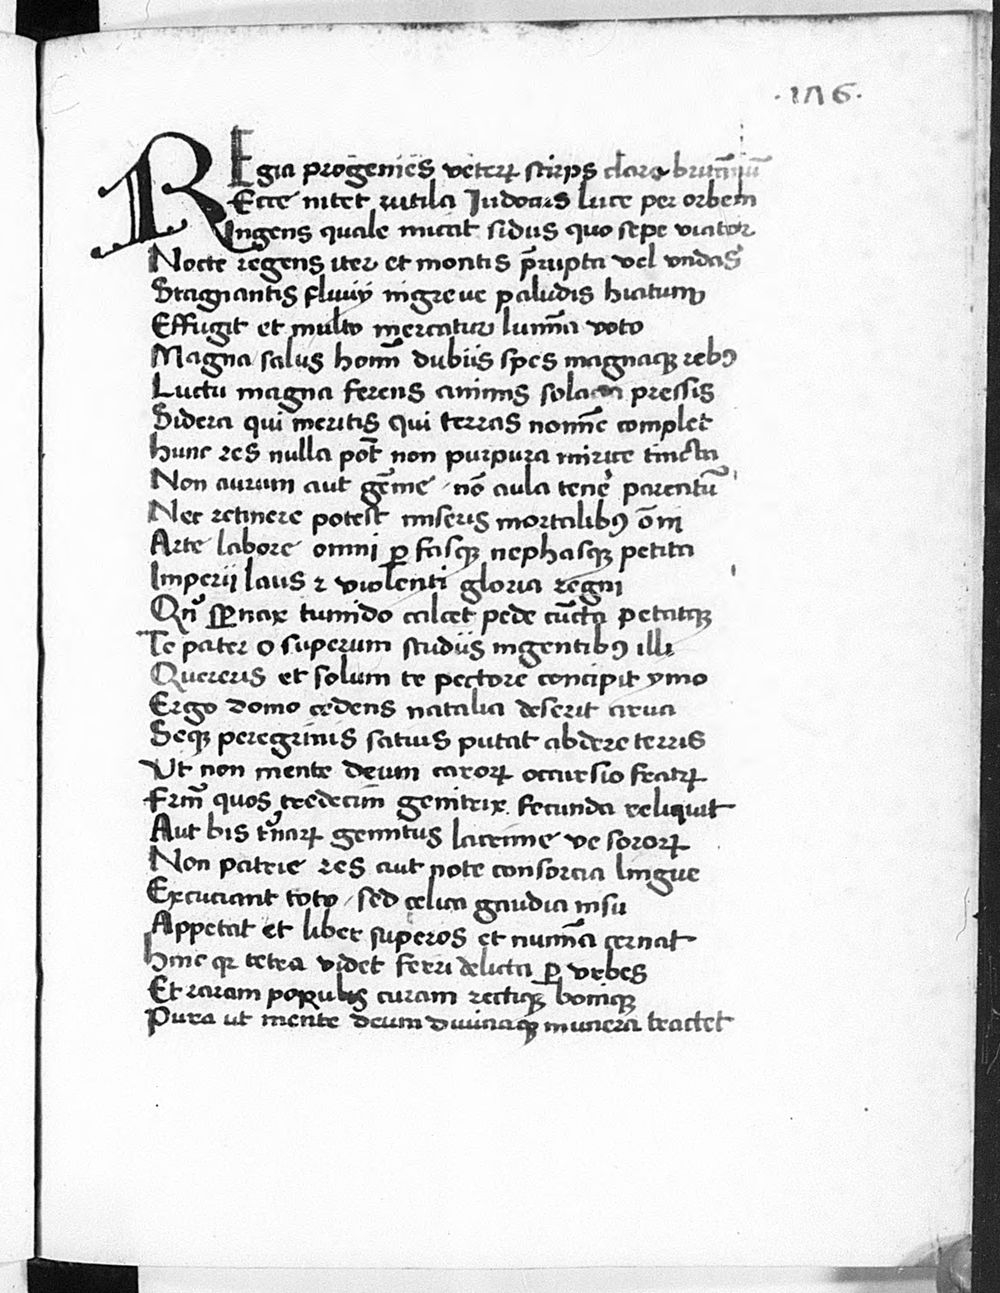 ·176·
REgia progenies veterꝝ stirps clara britãnũ
Ecce nitet rutila Iudocus luce per orbem
Ingens quale micat sidus quo sepe viator
Nocte regens iter et montis p̃rupta vel vndas
Stagnantis fluuij nigre ue paludis hiatum
Effugit et multo mercatur lumĩa voto
Magna salus homĩ dubiis spes magnaqꝫ rebꝰ
Luctu magna ferens animis solacia pressis
Sidera qui meritis qui terras nomĩe complet
Hunc res nulla põt non purpura murice tincta
Non aurum aut gẽme nõ aula tene᷑ parentũ
Nec retinere potest miseris mortalibꝰ õni
Arte labore omni ꝑ fasqꝫ nephasqꝫ petita
Imperij laus ⁊ violenti gloria regni
Qñ spernax tumido calcet pede cũcta petatqꝫ
Te pater o superum studiis ingentibꝰ illi
Quereris et solum te pectore concipit ymo
Ergo domo cedens natalia deserit arua
Seqꝫ peregrinis satius putat abdere terris
Ut non mente deum caroꝝ occursio fratꝝ
Frm̃ quos tredecim genitrix fecunda reliquit
Aut bis t̃naꝝ gemitus lacrime ve soroꝝ
Non patrie res aut note consorcia lingue
Excuciant toto sed celica gaudia nisu
Appetat et liber superos et numĩa cernat
Hinc qꝛ tetra videt ferri delicta ꝑ vrbes
Et raram populis curam rectiqꝫ boniqꝫ
Pura ut mente deum diuinaqꝫ munera tractet